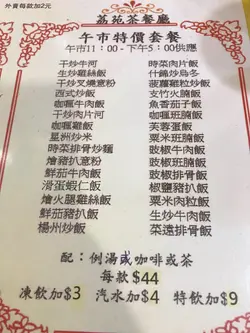 外賣每款加2元
荔苑茶餐廳
午市特價套餐
午市11：00 - 下午5：00供應
干炒牛河
生炒雞絲飯
干炒叉燒意粉
西式炒飯
咖喱牛肉飯
干炒肉片河
咖喱雞飯
星洲炒米
時菜排骨炒麵
燴豬扒意粉
鮮茄牛肉飯
滑蛋蝦仁飯
燴火腿雞絲飯
鮮茄豬扒飯
楊州炒飯
時菜肉片飯
什錦炒烏冬
菠蘿雞粒炒飯
支竹火腩飯
魚香茄子飯
芙蓉蛋飯
粟米班腩飯
咖喱班腩飯
豉椒牛肉飯
豉椒排骨飯
豉椒班腩飯
椒鹽豬扒飯
粟米肉粒飯
生炒牛肉飯
菜遠排骨飯
配：例湯或咖啡或茶
每款$44
凍飲加$3 汽水加$4 特飲加$9